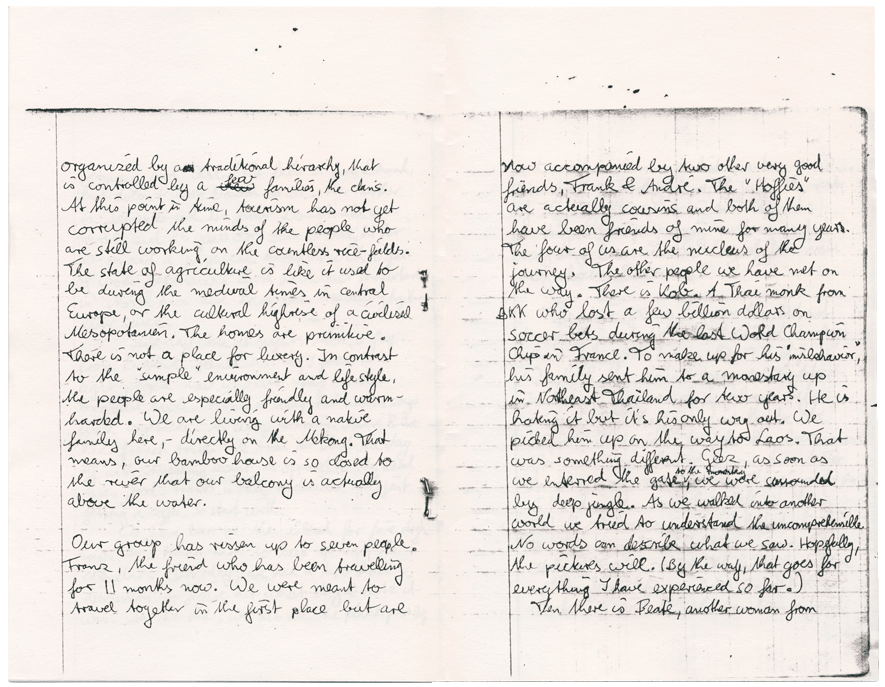 organized by a traditional hirarchy, that
is controlled by a few families, the clans.
At this point in time, tourism has not yet
corrupted the minds of the people who
are still working on the countless rice-fields.
The state of agriculture is like it used to
be during the medieval times in central
Europe, or the cultural highrise of a civilised
Mesopotamien. The homes are primitive.
There is not a place for luxery. In contrast
to the "simple" environment and lifestyle,
the people are especially friendly and warm-
harded. We are living with a native
family here, - directly on the Mekong. That
means, our bamboo house is so closed to
the river that our balcony is actually
above the water.
Our group has rissen up to seven people.
Franz, the friend who has been travelling
for 11 months now. We were meant to
travel together in the first place but are
now accompanied by two other very good
friends, Frank & Andre. The "Hoffies"
are actually cousins and both of them
have been friends of mine for many years.
The four of us are the nucleus of the
journey. The other people we have met on
the way. There is Kob. A Thai monk from
BKK who lost a few billion dollars on
soccer bets during the last World Champion
Chip in France. To make up for his "misbehavior",
his family sent him to a monestary up
in Northeast Thailand for two years. He is
hating it but it's his only way out. We
picked him up on the way to Laos. That
was something different. Geez, as soon as
we enterred the gate to the monestary, we were sorrounded
by deep jungle. As we walked into another
world we tried to understand the uncomprehensible.
No words can describe what we saw. Hopefully,
the pictures will. (By the way, that goes for
everything I have experienced so far.)
Then there is Beate, another woman from